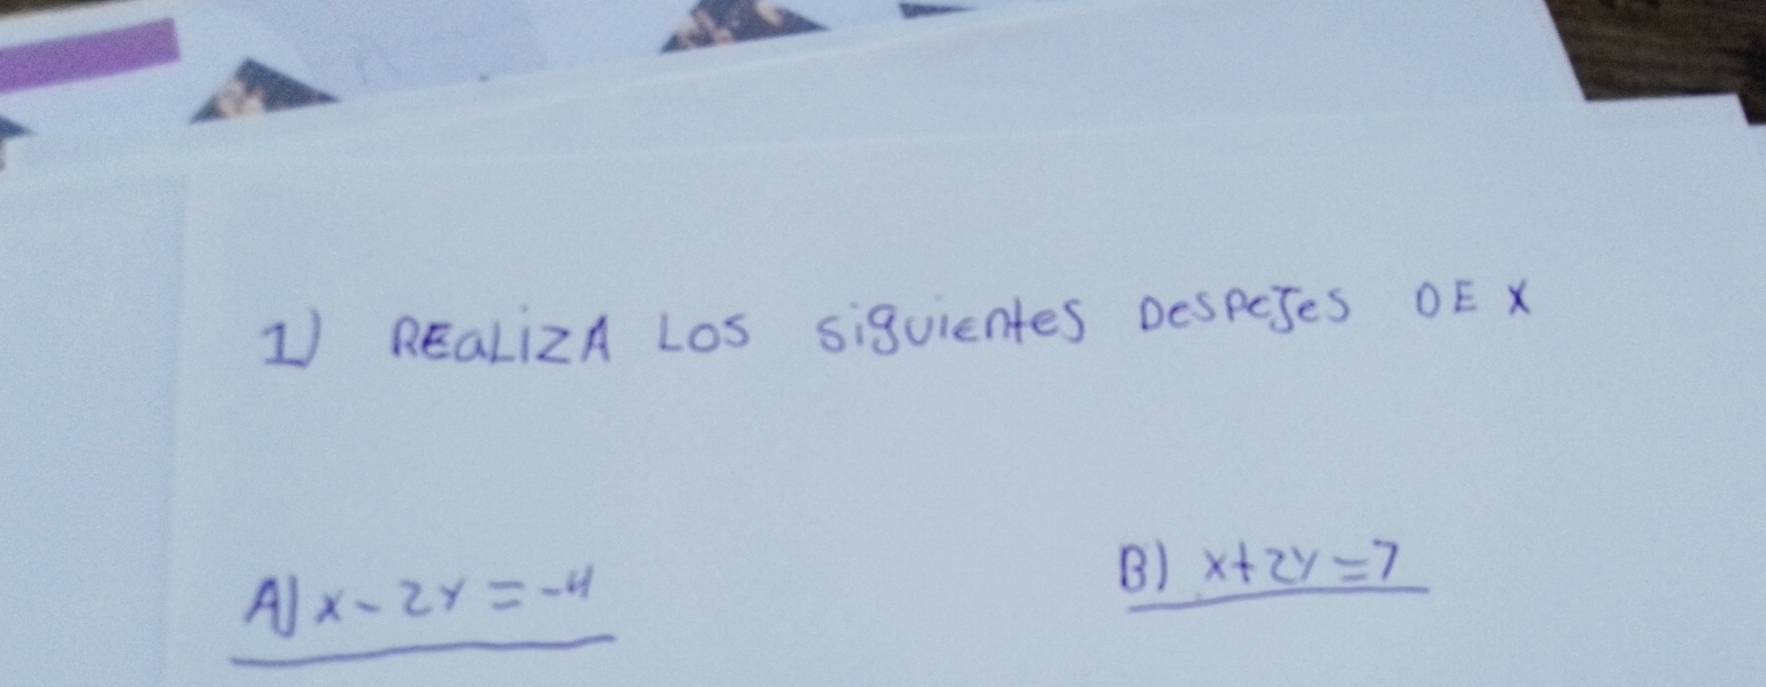 1) REALIZA LOS siguientes DespeJes DE X
A) x - 2y = -4
B) x + 2y = 7